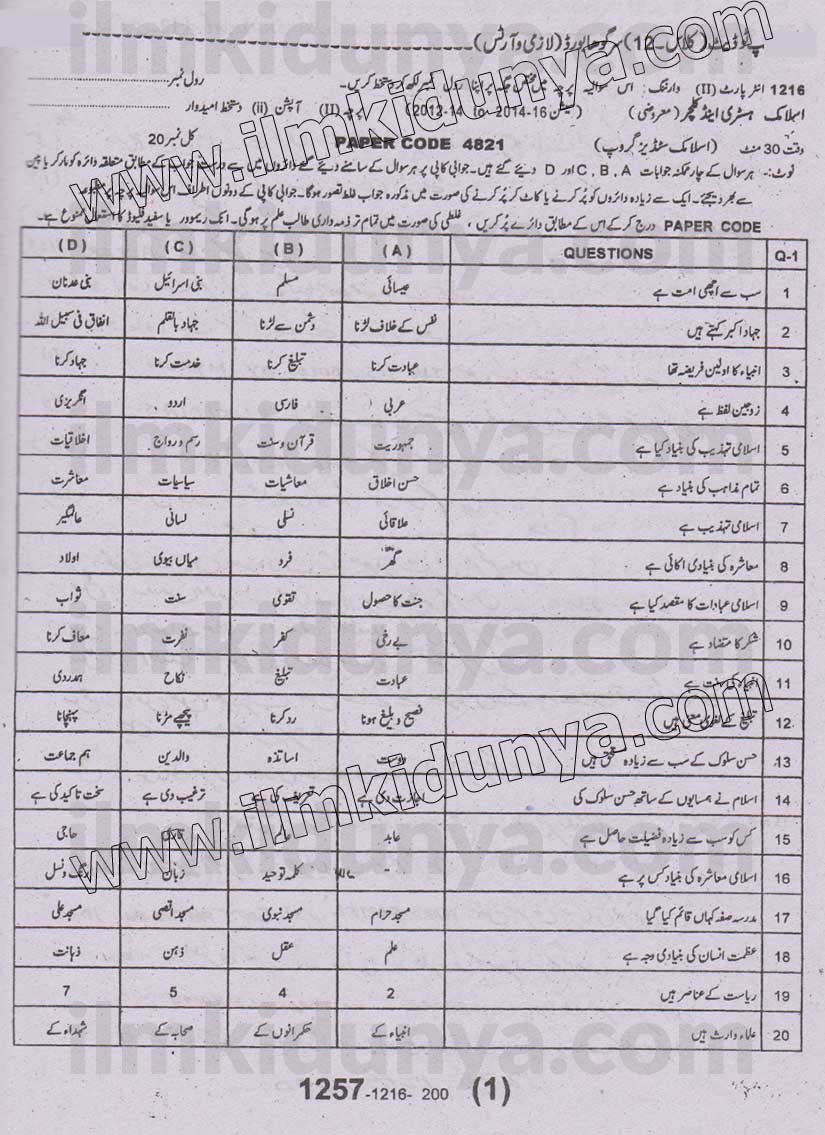 1216 انٹر پارٹ (II) وارننگ: اس سوالیہ پرچہ میں مختص جگہ پر اپنا رول نمبر لکھ کر دستخط کریں۔ رول نمبر
اسلامک ہسٹری اینڈ کلچر (معروضی) (سیشن 2014-16 to 2012-14) پرچہ (II) آپشن (ii) دستخط امیدوار
وقت 30 منٹ (اسلامک سٹڈیز گروپ) PAPER CODE 4821 کل نمبر 20
نوٹ: ہر سوال کے چار ممکنہ جوابات A, B, C اور D دیئے گئے ہیں۔ جوابی کاپی پر ہر سوال کے سامنے دیئے گئے دائروں میں سے درست جواب کے مطابق متعلقہ دائرہ کو مارکر یا پین
سے بھر دیجئے۔ ایک سے زیادہ دائروں کو پُر کرنے یا کاٹ کر پُر کرنے کی صورت میں مذکورہ جواب غلط تصور ہوگا۔ جوابی کاپی کے دونوں اطراف اس سوالیہ پرچہ پر مطبوعہ
PAPER CODE درج کر کے اس کے مطابق دائرے پُر کریں، غلطی کی صورت میں تمام تر ذمہ داری طالب علم پر ہوگی۔ انک ریموور یا سفید فلیوڈ کا استعمال ممنوع ہے۔
Q-1 QUESTIONS (A) (B) (C) (D)
1 سب سے اچھی امت ہے عیسائی مسلم بنی اسرائیل بنی عدنان
2 جہاد اکبر کہتے ہیں نفس کے خلاف لڑنا دشمن سے لڑنا جہاد بالقلم انفاق فی سبیل اللہ
3 انبیاء کا اولین فریضہ تھا عبادت کرنا تبلیغ کرنا خدمت کرنا جہاد کرنا
4 زوجین لفظ ہے عربی فارسی اردو انگریزی
5 اسلامی تہذیب کی بنیاد کیا ہے جمہوریت قرآن و سنت رسم و رواج اخلاقیات
6 تمام مذاہب کی بنیاد ہے حسن اخلاق معاشیات سیاسیات معاشرت
7 اسلامی تہذیب ہے علاقائی نسلی لسانی عالمگیر
8 معاشرہ کی بنیادی اکائی ہے گھر فرد میاں بیوی اولاد
9 اسلامی عبادات کا مقصد کیا ہے جنت کا حصول تقویٰ سنت ثواب
10 شکر کا متضاد ہے بے رخی کفر نفرت معاف کرنا
11 انبیاء کی سنت ہے عبادت تبلیغ نکاح ہمدردی
12 تبلیغ کے لغوی معنی ہیں فصیح و بلیغ ہونا رد کرنا پیچھے مڑنا پہنچانا
13 حسن سلوک کے سب سے زیادہ مستحق ہیں دوست اساتذہ والدین ہم جماعت
14 اسلام نے ہمسایوں کے ساتھ حسن سلوک کی اجازت دی ہے تعریف کی ہے ترغیب دی ہے سخت تاکید کی ہے
15 کس کو سب سے زیادہ فضیلت حاصل ہے عابد عالم حاجی
16 اسلامی معاشرہ کی بنیاد کس پر ہے کلمہ توحید زبان رنگ و نسل
17 مدرسہ صفہ کہاں قائم کیا گیا مسجد حرام مسجد نبوی مسجد اقصیٰ مسجد علی
18 عظمت انسان کی بنیادی وجہ ہے علم عقل ذہن ذہانت
19 ریاست کے عناصر ہیں 2 4 5 7
20 علماء وارث ہیں انبیاء کے حکمرانوں کے صحابہ کے شہداء کے
1257-1216-200 (1)
www.ilmkidunya.com
www.ilmkidunya.com
ilmkidunya.com
ilmkidunya.com
ilmkidunya.com
ilmkidunya.com
ilmkidunya.com
ilmkidunya.com